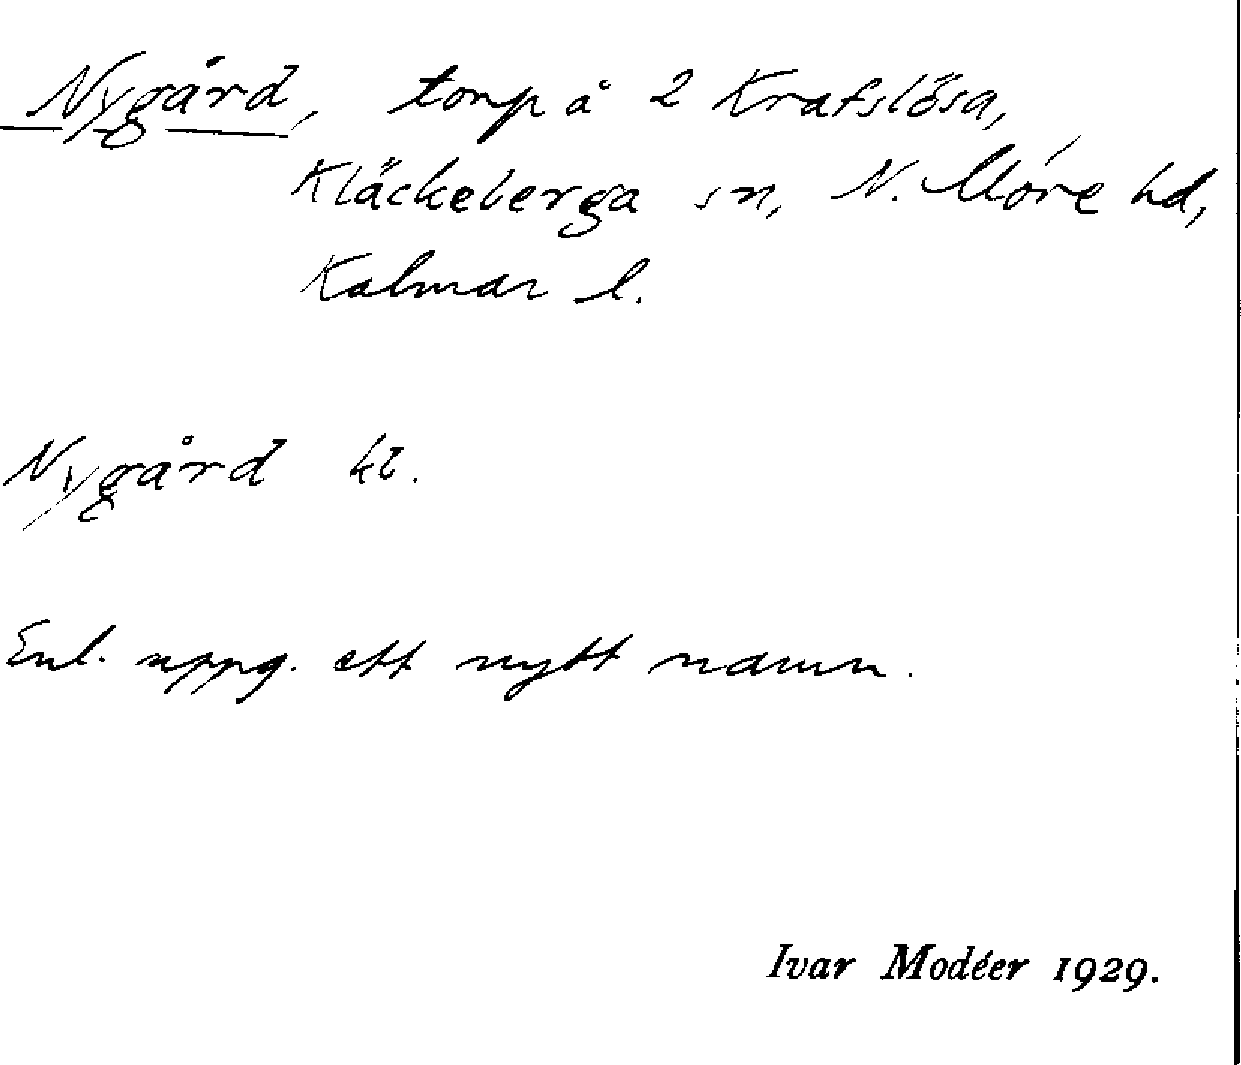 Nygård, torp å 2 Krafslösa,
Kläckeberga sn, N. Möre hd,
Kalmar l.
Nygård kt.
Enl. uppg. ett nytt namn.
Ivar Modéer 1929.